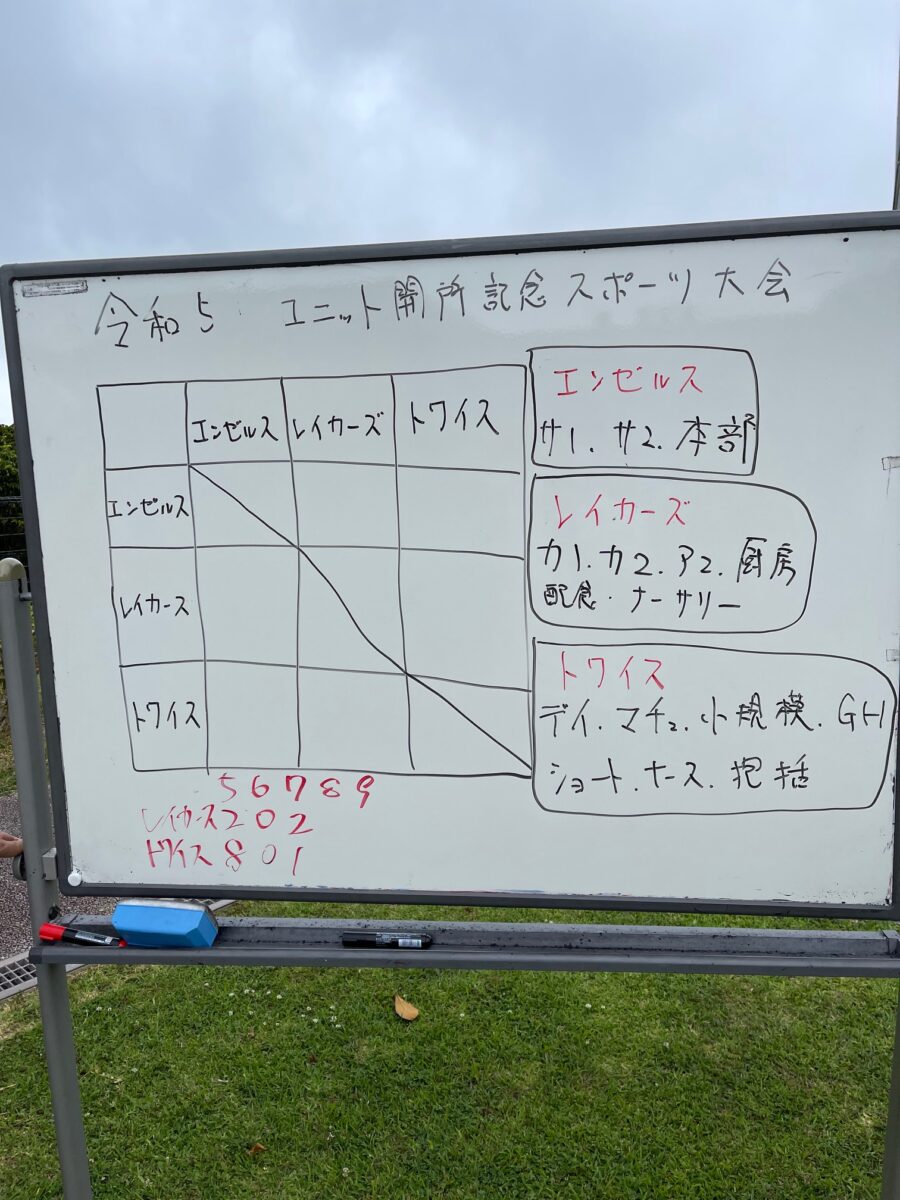 令和5 ユニット開所記念スポーツ大会
エンゼルス レイカーズ トワイス
エンゼルス
レイカース
トワイス
エンゼルス
サ1.サ2.本部
レイカーズ
カ1.カ2.ア2.厨房
配食・ナーサリー
トワイス
デイ.マチュ.小規模.GH
ショート.ナース.包括
5 6 7 8 9
レイカース 2 0 2
トワイス 8 0 1